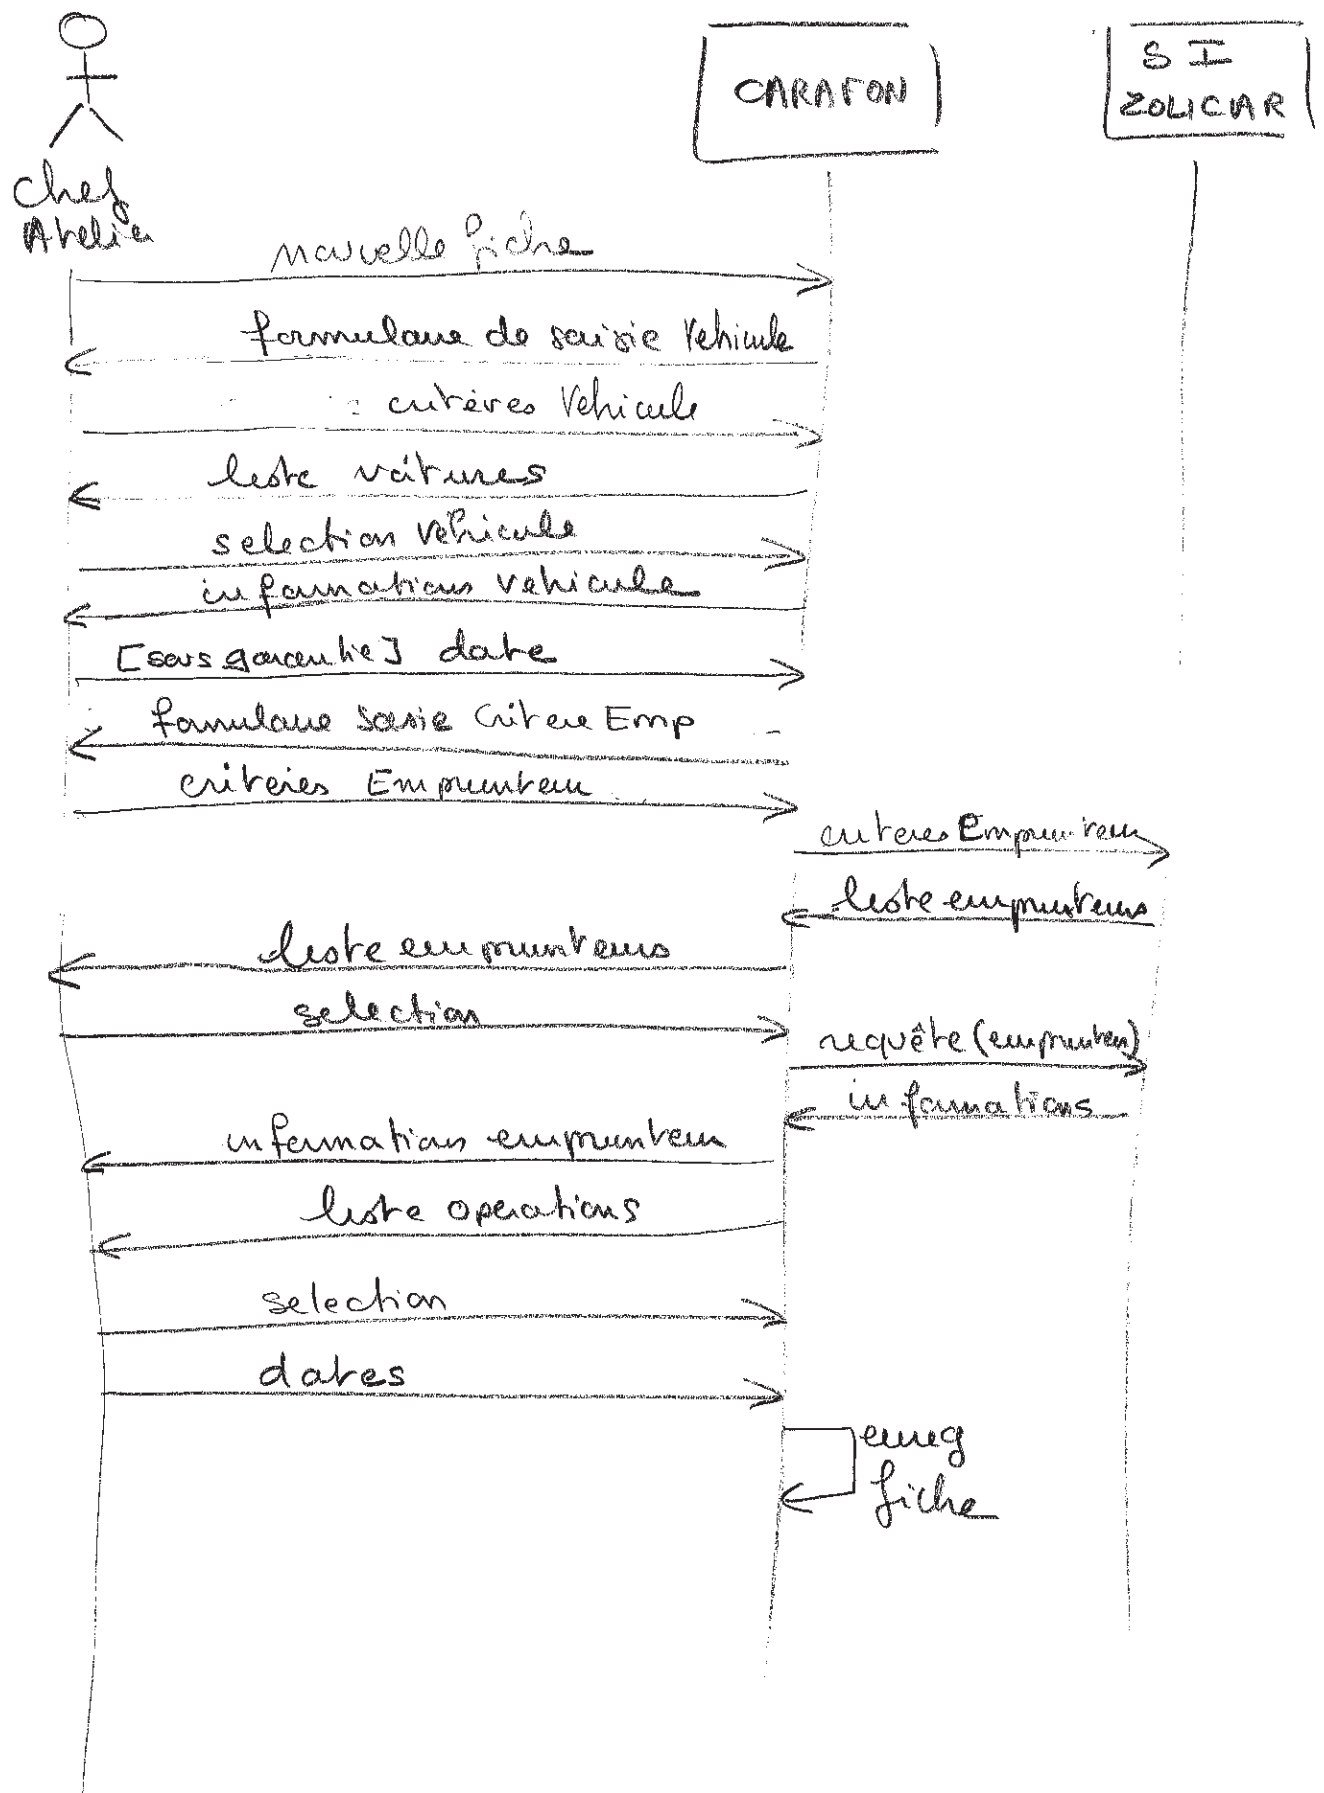 CARAFON
S I
ZOLICAR
Chef
Atelier
nouvelle fiche
formulaire de saisie Vehicule
critères Vehicule
liste voitures
selection Véhicule
informations vehicule
[sous garantie] date
formulaire saisie Critere Emp
critères Emprunteur
criteres Emprunteur
liste emprunteurs
liste emprunteurs
selection
requête (emprunteur)
informations
informations emprunteur
liste operations
selection
dates
enreg
fiche